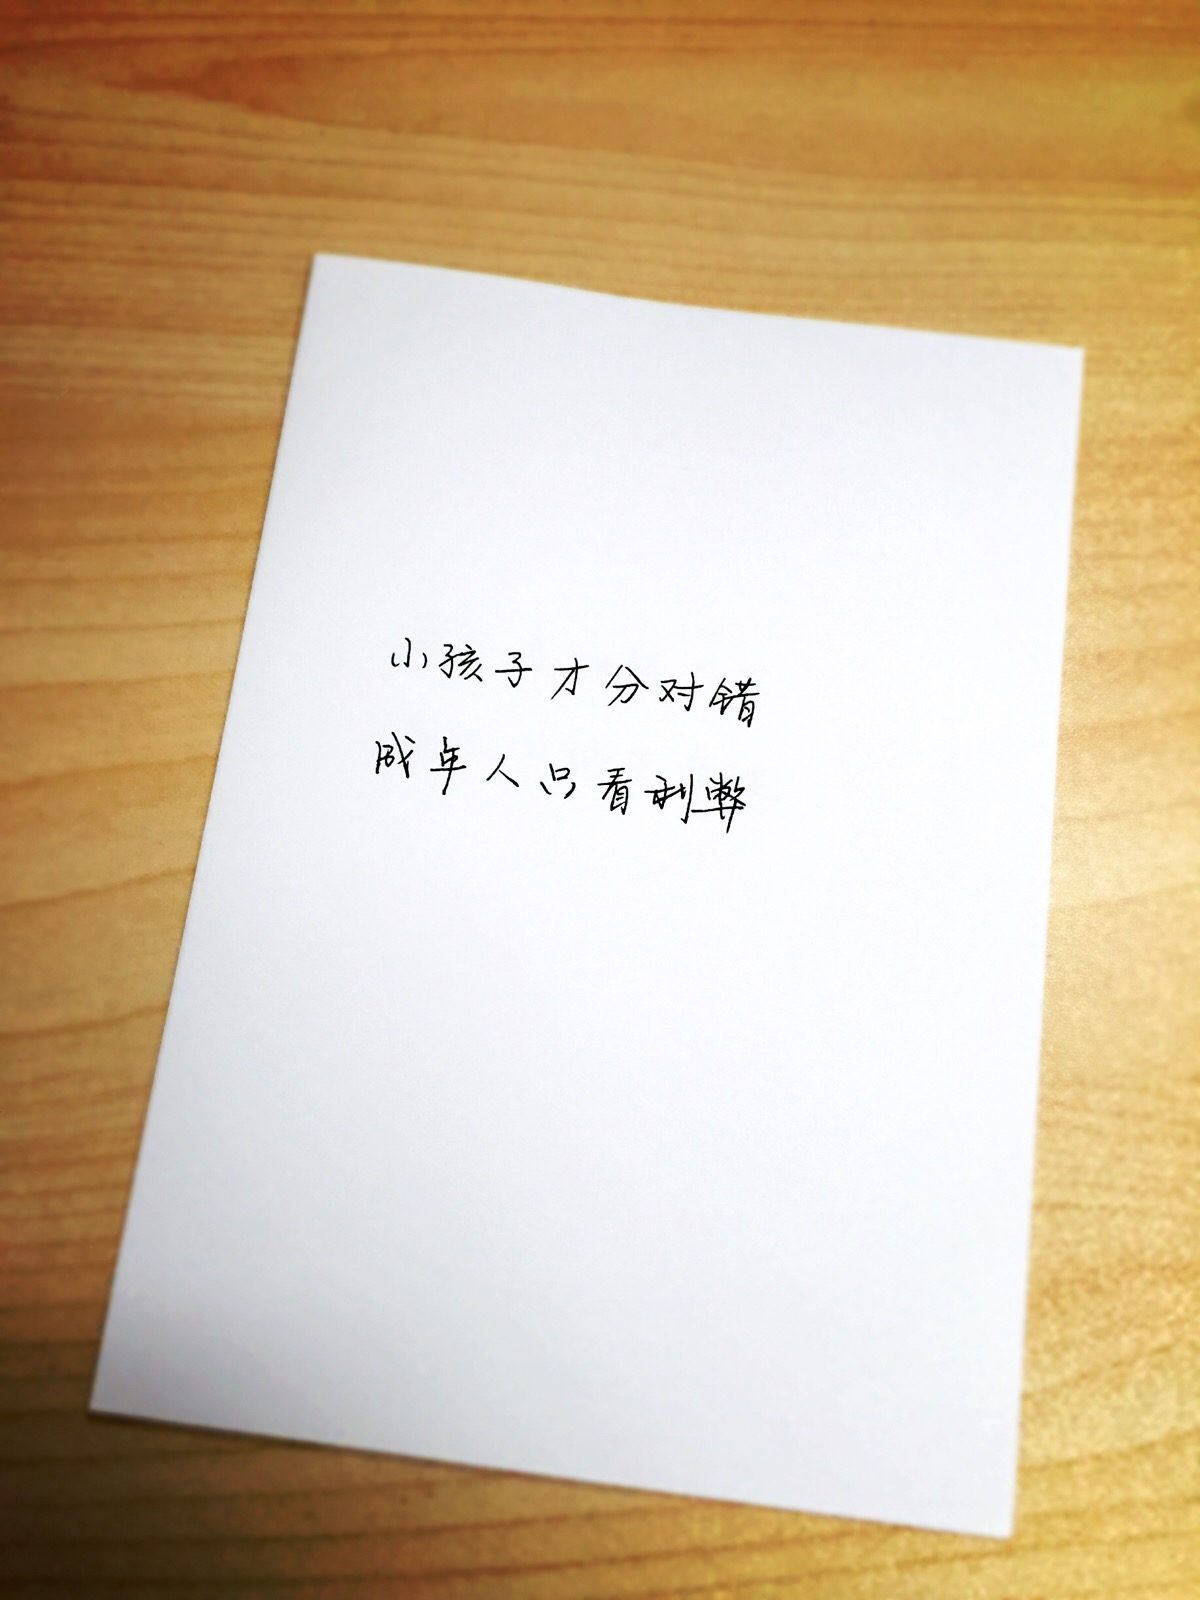 小孩子才分对错
成年人只看利弊